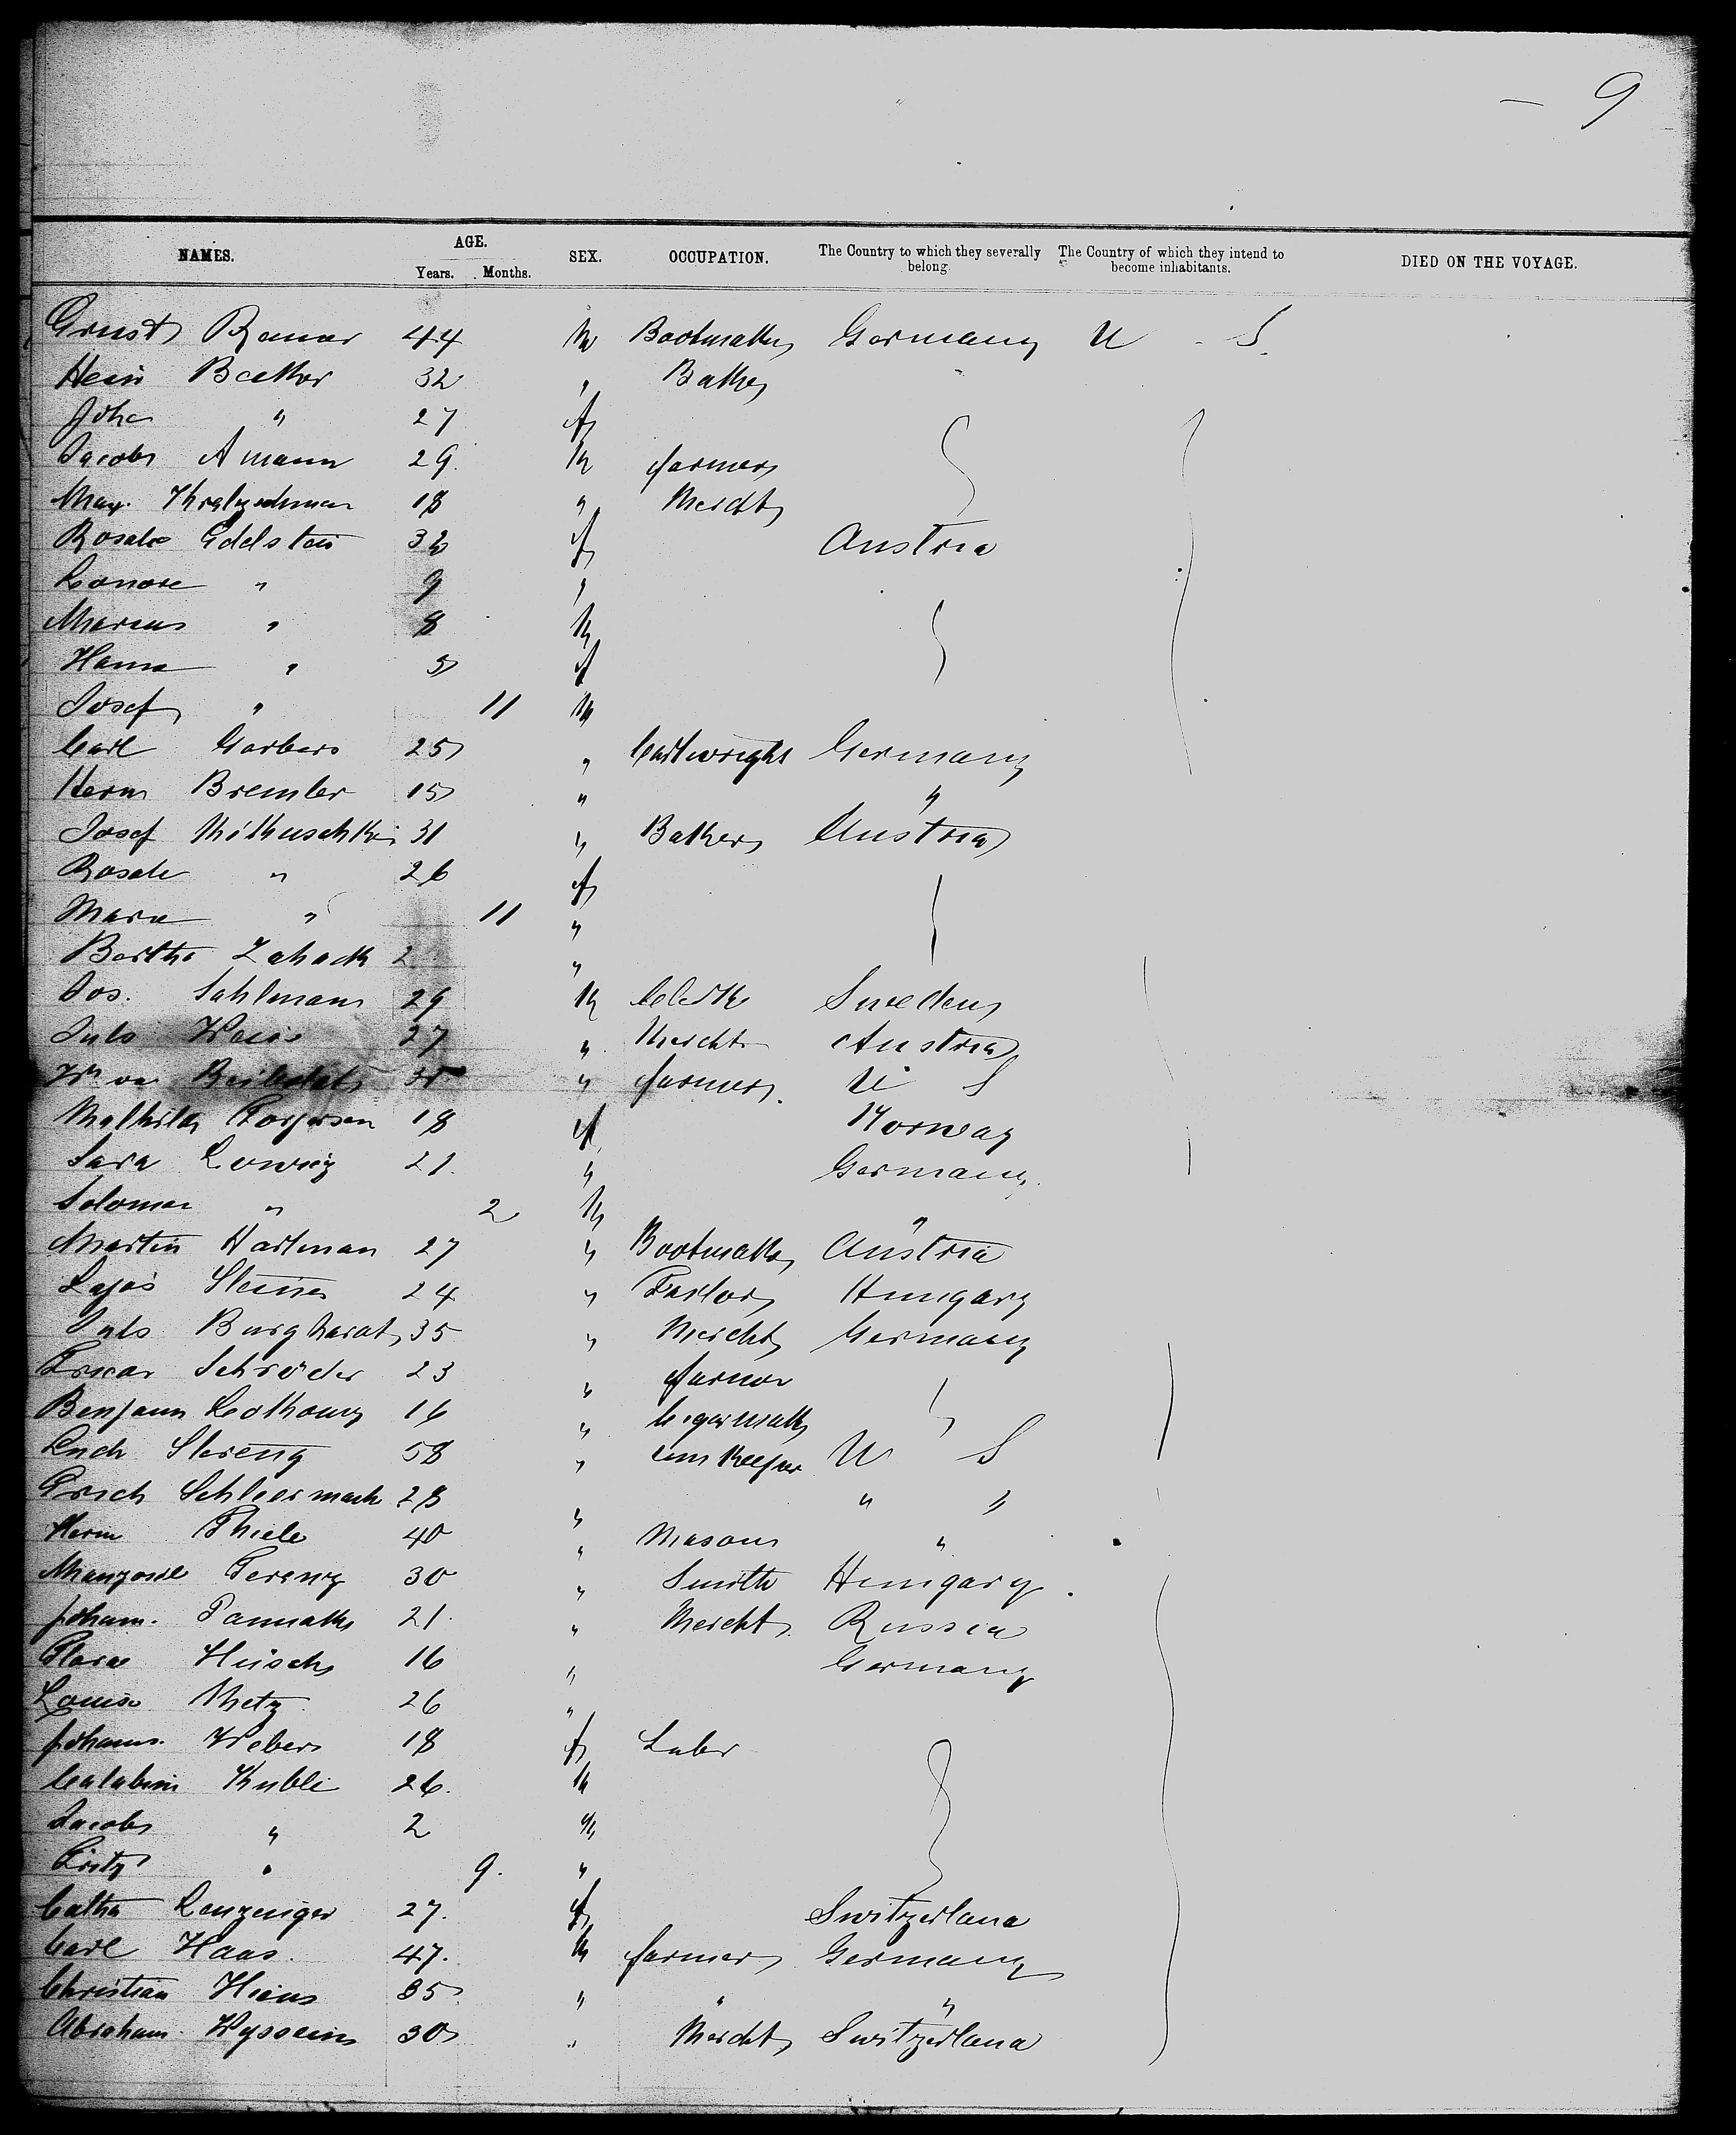 9
NAMES. AGE. Years. Months. SEX. OCCUPATION. The Country to which they severally belong. The Country of which they intend to become inhabitants. DIED ON THE VOYAGE.
Ernst 44 M Germany U S.
Hein 32 " Baker
" 27 f
Jacob Amann 29 M farmer
Max 18 " Mercht
Rosalie Edelstein 32 f Austria
Leonore " 9 "
Marcus " 8 M
Hanna " 5 f
Josef " 11 M
Carl Garbers 25 " Cartwright Germany
Herm Bremler 15 " "
Josef 31 " Baker Austria
Rosalie " 26 f
Marie " 11 "
Bertha 2 "
Jos. Sahlmann 29 M Clerk Sweden
Juls Weiss 27 " Mercht Austria
" farmer U S
Mathilde Torgersen 18 f Norway
Sara 21 " Germany
Solomon " 2 M "
Martin Hartman 27 " Bootmaker Austria
Lajos Steiner 24 " Tailor Hungary
Juls Burghardt 35 " Mercht Germany
Schröder 23 " farmer
Benjamin 16 " Cigarmaker
58 " Innkeeper U S
Erich 28 " " "
Herm Thiele 40 " Mason "
30 " Smith Hungary
Johann. 21 " Mercht Russia
Clara Hirsch 16 " Germany
Louise Metz 26 "
Johanna. Weber 18 f Labr
Kubli 26 M
Jacob " 2 M
Fritz " 9. "
Catha 27. f Switzerland
Carl Haas. 47. M farmer Germany
Christian Heins 35 " " "
Abraham 30 " Mercht Switzerland